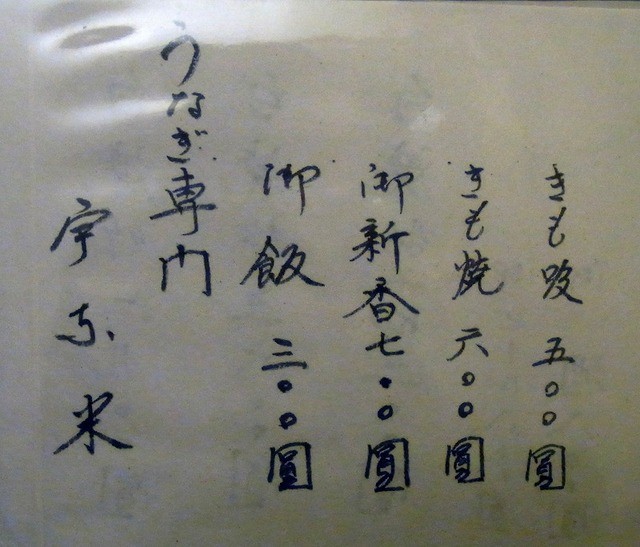 きも吸 五〇〇圓
きも焼 六〇〇圓
御新香 七〇〇圓
御飯 三〇〇圓
うなぎ専門
宇な米